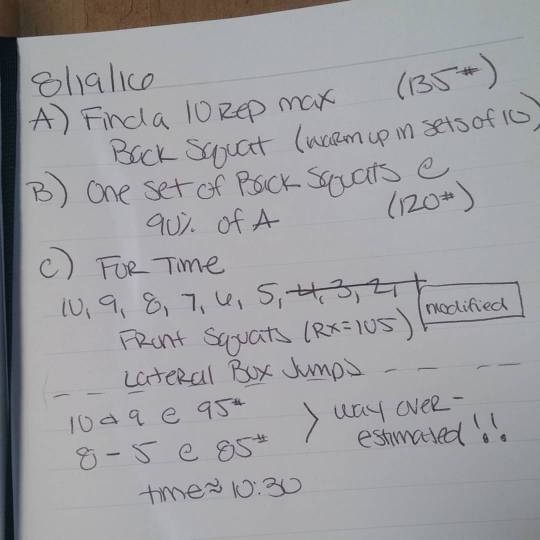 8/19/16
A) Find a 10 Rep max (135#)
Back Squat (warm up in sets of 10)
B) One set of Back Squats @
90% of A (120#)
C) For Time
10, 9, 8, 7, 6, 5, 4, 3, 2, 1
Front Squats (Rx=105) modified
Lateral Box Jumps
10 & 9 @ 95#
8 - 5 @ 85# > way over-
estimated!!
time ≈ 10:30